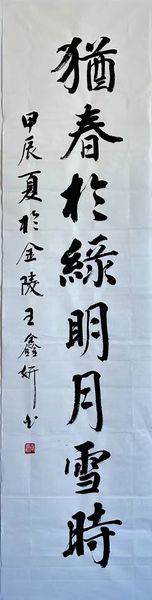 猶春於綠明月雪時
甲辰夏於金陵王鑫妍书